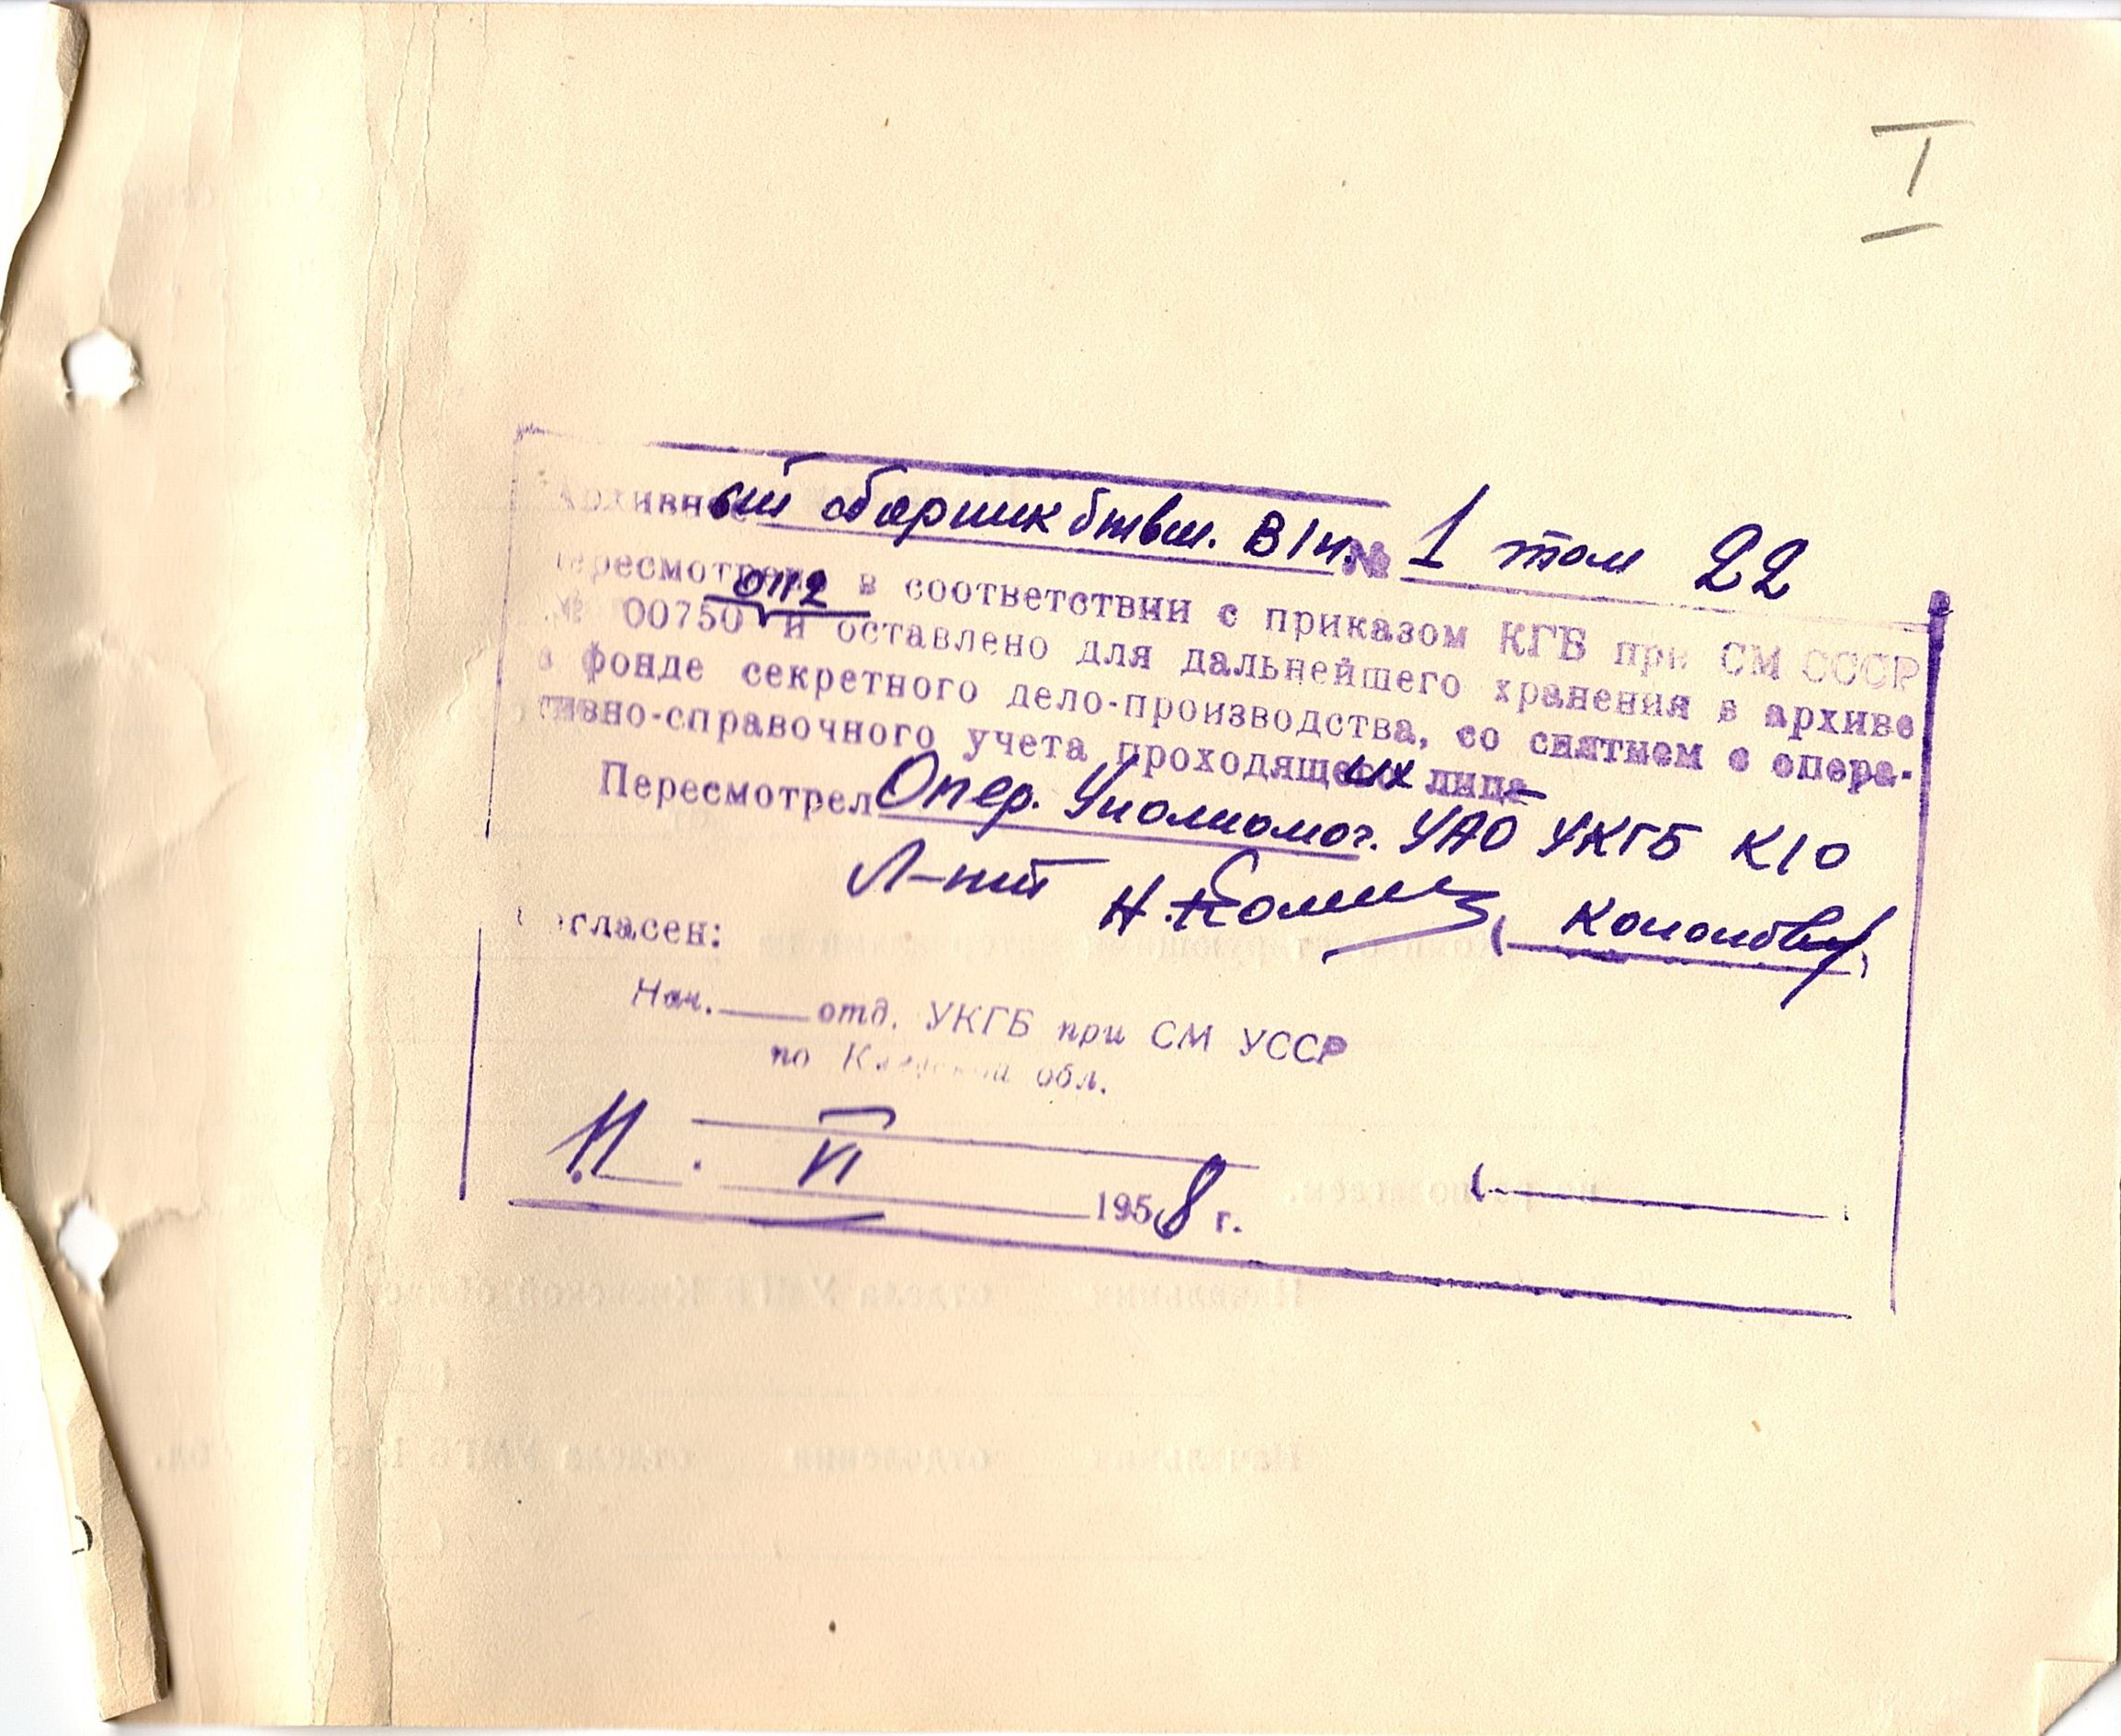 I
Архивный сборник № 1 том 22
Пересмотрен в соответствии с приказом КГБ при СМ СССР
№ 00750 0112 и оставлено для дальнейшего хранения в архиве
в фонде секретного дело-производства, со снятием с опера-
тивно-справочного учета проходящих лиц
Пересмотрел Опер. Уполномоч. УАО УКГБ К/О
Л-нт Н.
Согласен:
Нач. отд. УКГБ при СМ УССР
по Киевской обл.
11. VI 1958 г.